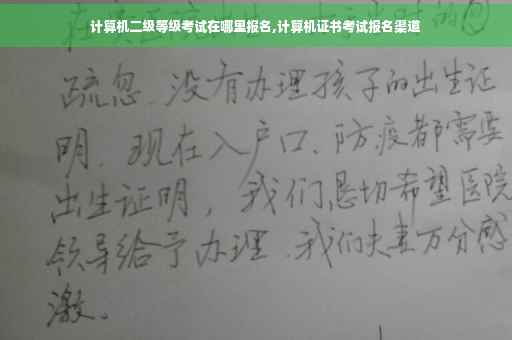 计算机二级等级考试在哪里报名,计算机证书考试报名渠道
疏忽、没有办理孩子的出生证
明、现在入户口、防疫都需要
出生证明，我们恳切希望医院
领导给予办理、我们夫妻万分感
激。